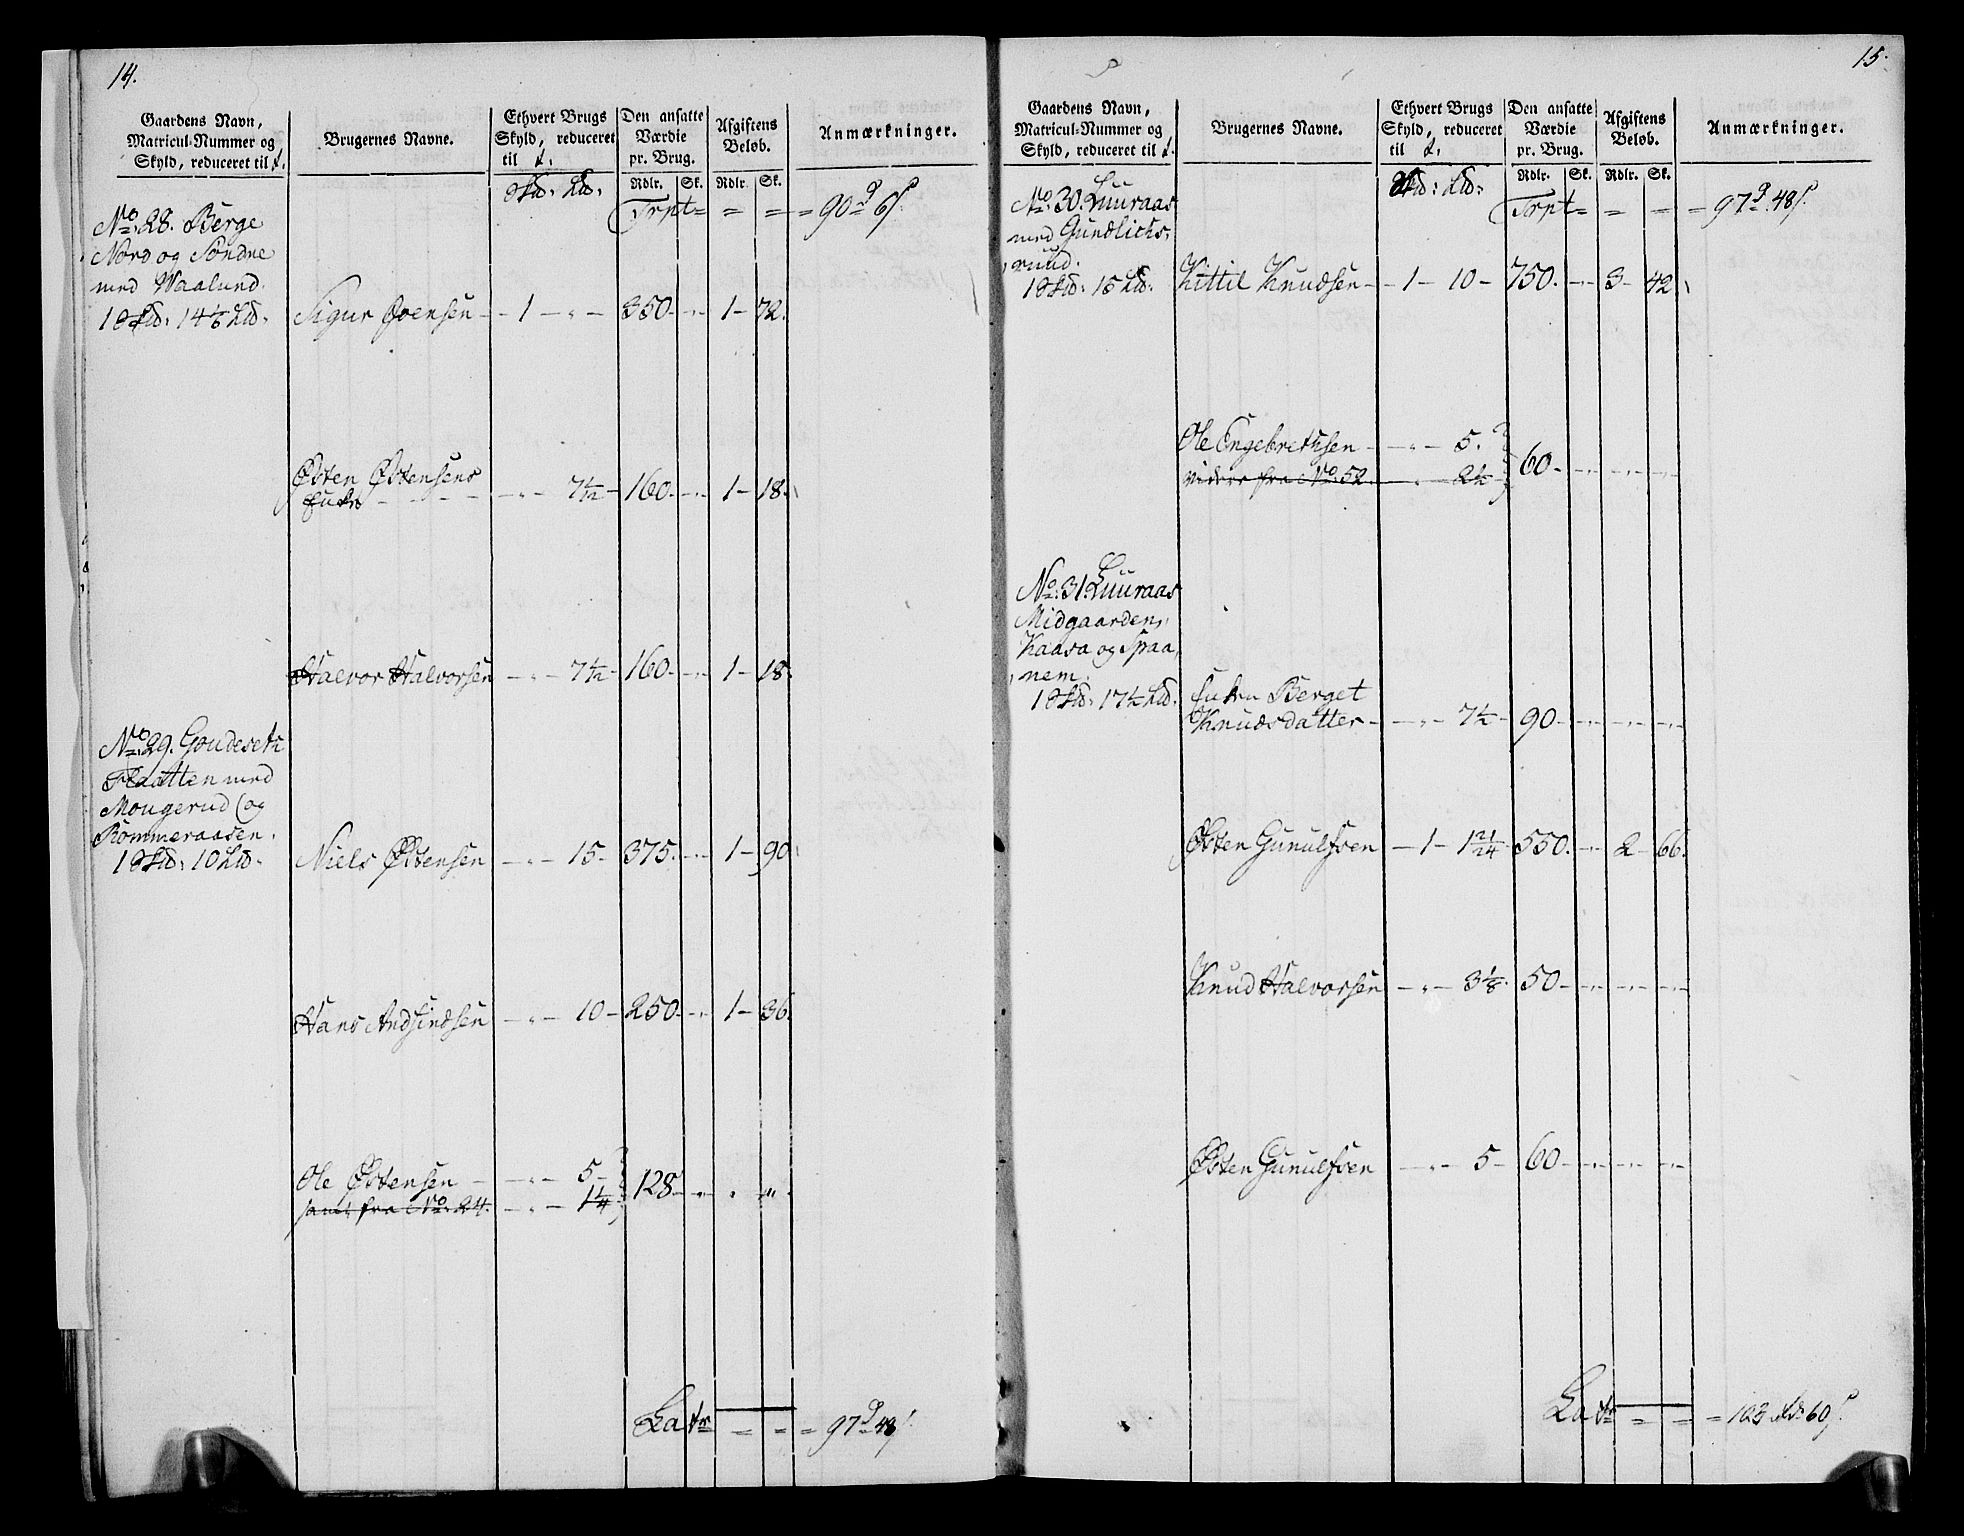 14.
Gaardens Navn,
Matricul-Nummer og
Skyld, reduceret til
Brugernes Navne.
Ethvert Brugs
Skyld, reduceret
til
Den ansatte
Værdie
pr. Brug.
Afgiftens
Beløb.
Anmærkninger.
Rdlr. Sk. Rdlr. Sk.
Skd: Ld:
Trpt = = = = 90 d 6 s
No: 28. Berge
Nord og Søndre
med Waalund.
1 Skd: 14 1/6 Ld.
Sigur Joensen - 1 - " - 350 - " - 1 - 72.
Østen Østensens
Enke - " - 7 1/2 - 160 - " - 1 - 18.
Halvor Halvorsen - " - 7 1/2 - 160 - " - 1 - 18.
No: 29. Goudeseth
Flaatten med
Mougerud og
Rommeraasen.
1 Skd: 10 Ld.
Niels Østensen - " - 15 - 375 - " - 1 - 90.
Hans Andsindsen - " - 10 - 250 - " - 1 - 36.
Ole Østensen - " - 5 -
samt fra No. 24. - " - 1 1/4 128 - " " "
Latr = = = 97 d 48 s
15.
Gaardens Navn,
Matricul-Nummer og
Skyld, reduceret til
Brugernes Navne.
Ethvert Brugs
Skyld, reduceret
til
Den ansatte
Værdie
pr. Brug.
Afgiftens
Beløb.
Anmærkninger.
Rdlr. Sk. Rdlr. Sk.
Skd: Ld:
Trpt = = = = 97 d 48 s
No: 30. Luuraas
med Gundlichs-
ruud.
1 Skd: 15 Ld.
Kittil Knudsen - 1 - 10 - 750. - " - 3 - 42
Ole Engebrethsen - " - 5.
videre fra No. 52 - " - 2 1/2 60 - " - " - " -
No: 31. Luuraas
Midgaarden,
Kaasa og Spaa-
nem.
1 Skd: 17 1/2 Ld.
Enken Berget
Knudsdatter - " - 7 1/2 - 90 - " - " - " -
Østen Gunulfsen - 1 - 1 21/24 550. - " - 2 - 66.
Knud Halvorsen - " - 3 1/8. 50 - " - " - " -
Østen Gunulfsen - " - 5 - 60 - " - " - " -
Latr = = = 103 Rd 60 s